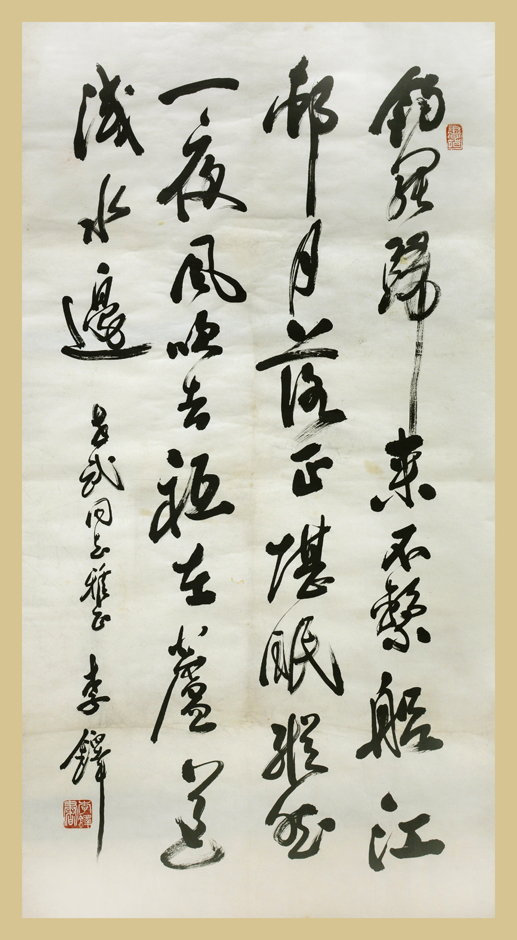 釣罷歸來不繫船江
邨月落正堪眠縱然
一夜風吹去祇在蘆花
淺水邊
武同志雅正
李鐸